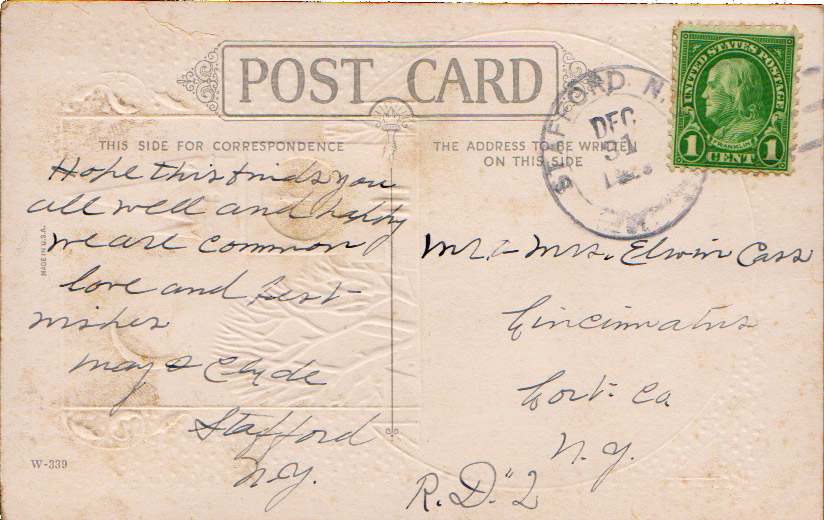 POST CARD
THIS SIDE FOR CORRESPONDENCE
Hope this finds you
all well and happy
we are common
love and best
wishes
May & Clyde
Stafford
N.Y.
MADE IN U.S.A.
W-339
THE ADDRESS TO BE WRITTEN
ON THIS SIDE
STAFFORD N.
DEC
31
UNITED STATES POSTAGE
FRANKLIN
1 CENT 1
Mr. & Mrs. Elwin Cass
Cincinnatus
Cort. Co
N.Y.
R.D. "2